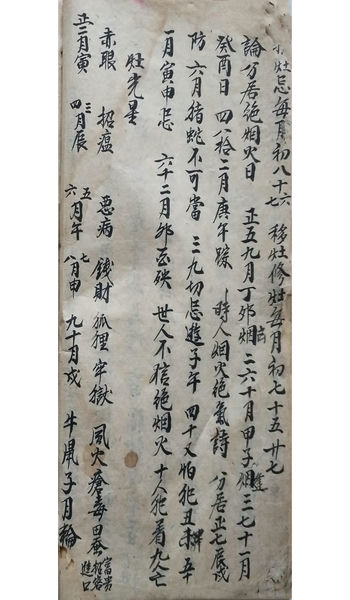 灶忌每月初八十六 十七 移灶修灶每月初七十五廿七
論分居絕烟火日 正五九月丁卯烟 二六十月甲子烟 三七十一月
癸酉日 四八拾二月庚午踪 時人烟火絕氣詩 分居正七辰戌
防 六月猪蛇不可當 三九切忌逢子午 四十又怕犯丑 五十
一月寅申忌 六十二月卯酉殃 世人不信絕烟火 十人犯着九人亡
灶光星
赤眼 招瘟 惡病 錢財 狐狸 牢獄 風火 瘡毒 田蚕 富貴 招客 進口
正二月寅 三四月辰 五六月午 七八月申 九十月戌 牛鼠子月輪